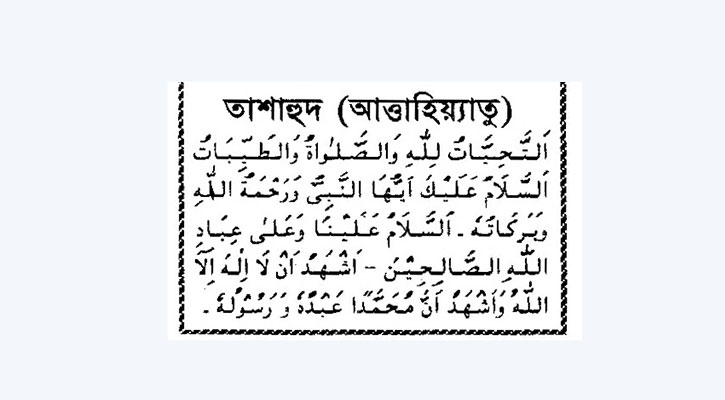 তাশাহুদ (আত্তাহিয়্যাতু)
اَلتَّحِيَّاتُ لِلّٰهِ وَالصَّلٰوَاةُ وَالطَّيِّبَاتُ
اَلسَّلَامُ عَلَيْكَ اَيُّهَا النَّبِىُّ وَرَحْمَةُ اللّٰهِ
وَبَرَكَاتُهٗ ـ اَلسَّلَامُ عَلَيْنَا وَعَلٰى عِبَادِ
اللّٰهِ الصَّالِحِيْنَ – اَشْهَدُ اَنْ لَا اِلٰهَ اِلَّا
اللّٰهُ وَاَشْهَدُ اَنَّ مُحَمَّدًا عَبْدُهٗ وَرَسُوْلُهٗ ـ